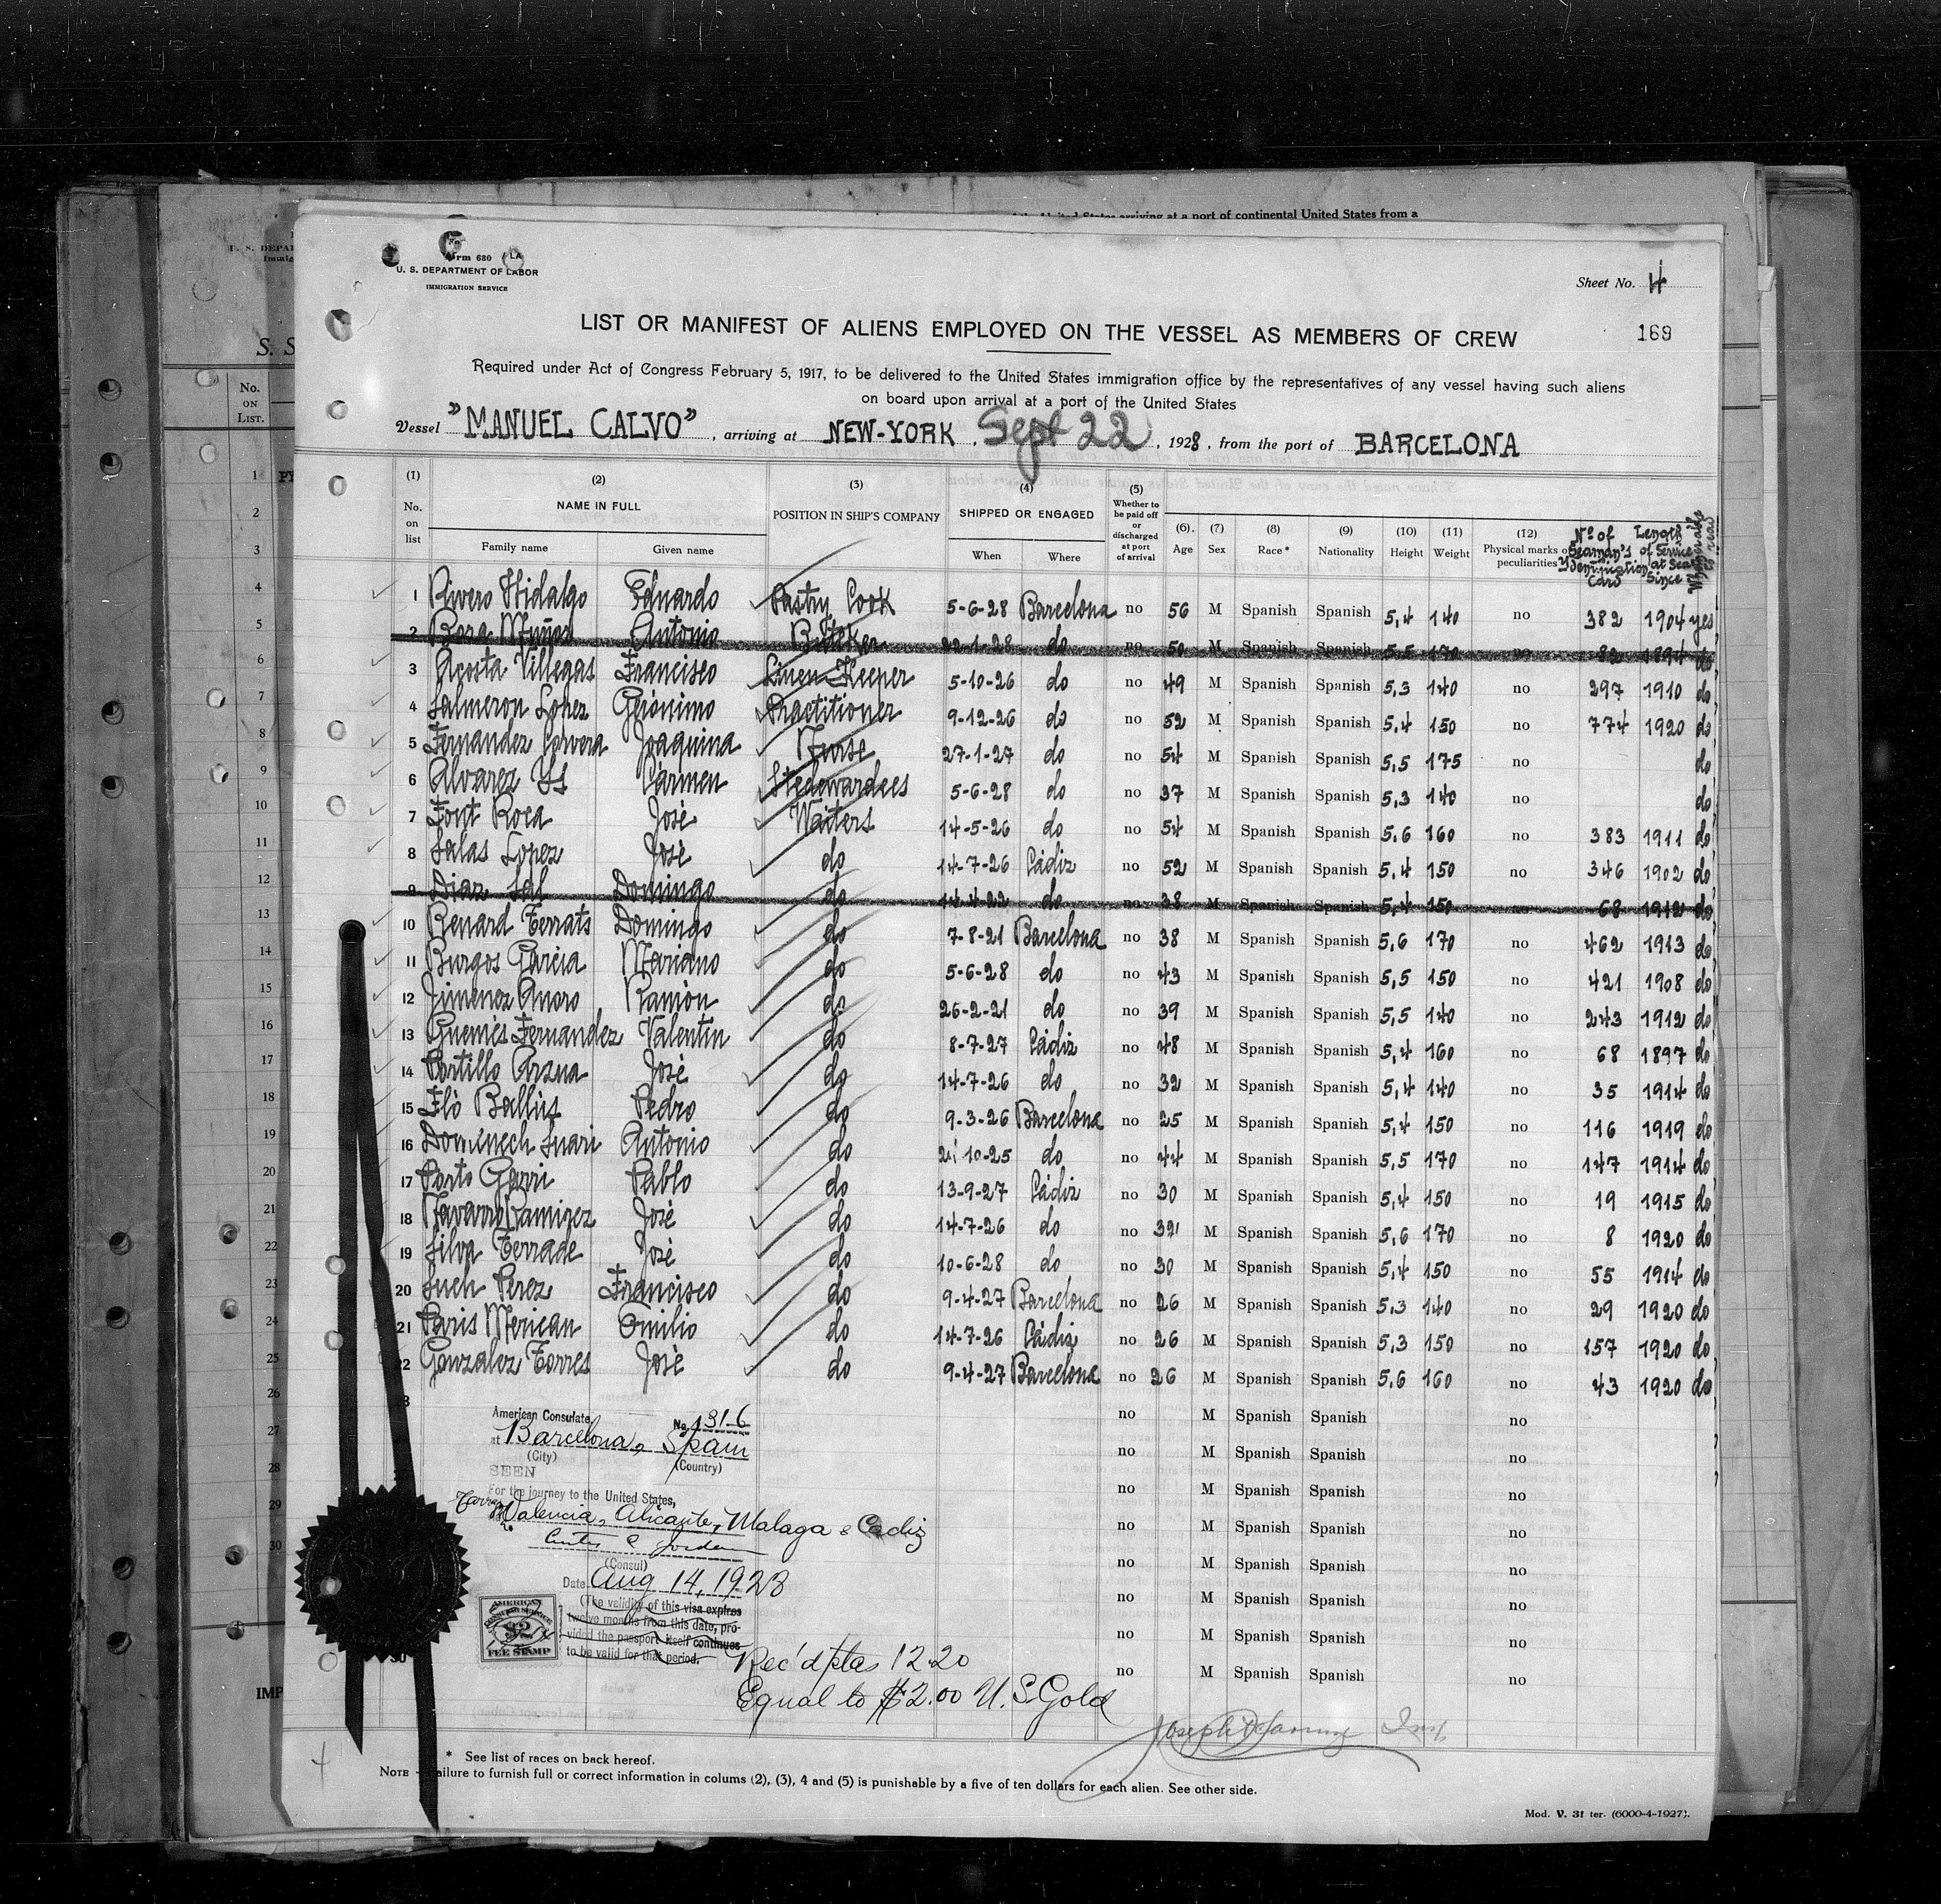 of the United States arriving at a port of continental United States from a
Form 680
U. S. DEPARTMENT OF LABOR
IMMIGRATION SERVICE
Sheet No. 4
LIST OR MANIFEST OF ALIENS EMPLOYED ON THE VESSEL AS MEMBERS OF CREW
169
Required under Act of Congress February 5, 1917, to be delivered to the United States immigration office by the representatives of any vessel having such aliens
on board upon arrival at a port of the United States
Vessel "MANUEL CALVO", arriving at NEW-YORK, Sept 22, 1928, from the port of BARCELONA
(1) No. on list (2) NAME IN FULL Family name Given name (3) POSITION IN SHIP'S COMPANY (4) SHIPPED OR ENGAGED When Where (5) Whether to be paid off or discharged at port of arrival (6) Age (7) Sex (8) Race * (9) Nationality (10) Height (11) Weight (12) Physical marks or peculiarities Nº of Seaman's Ydentification Card Length of Service at Sea Since
1 Rivero Hidalgo Eduardo Pastry Cook 5-6-28 Barcelona no 56 M Spanish Spanish 5,4 140 no 382 1904 yes
2 Antonio 22-1-28 do no 50 M Spanish Spanish 5,5 170 no 82 1894 do
3 Acosta Villegas Francisco Linen Keeper 5-10-26 do no 49 M Spanish Spanish 5,3 140 no 297 1910 do
4 Salmeron Lopez Gerónimo Practitioner 9-12-26 do no 52 M Spanish Spanish 5,4 150 no 774 1920 do
5 Fernandez Corvera Joaquina Nurse 27-1-27 do no 54 M Spanish Spanish 5,5 175 no do
6 Alvarez Carmen Stedewardees 5-6-28 do no 37 M Spanish Spanish 5,3 140 no do
7 Font Roca José Waiters 14-5-26 do no 54 M Spanish Spanish 5,6 160 no 383 1911 do
8 Salas Lopez José do 14-7-26 Cádiz no 52 M Spanish Spanish 5,4 150 no 346 1902 do
9 Diaz Sal Domingo do 14-4-22 do no 38 M Spanish Spanish 5,4 150 no 68 1912 do
10 Renard Ferrats Domingo do 7-8-21 Barcelona no 38 M Spanish Spanish 5,6 170 no 462 1913 do
11 Burgos Garcia Mariano do 5-6-28 do no 43 M Spanish Spanish 5,5 150 no 421 1908 do
12 Jimenez Ramón do 26-2-21 do no 39 M Spanish Spanish 5,5 140 no 243 1912 do
13 Guemes Fernandez Valentin do 8-7-27 Cádiz no 48 M Spanish Spanish 5,4 160 no 68 1897 do
14 Portillo José do 14-7-26 do no 32 M Spanish Spanish 5,4 140 no 35 1914 do
15 Fló Ballús Pedro do 9-3-26 Barcelona no 25 M Spanish Spanish 5,4 150 no 116 1919 do
16 Domenech Suari Antonio do 10-25 do no 44 M Spanish Spanish 5,5 170 no 147 1914 do
17 Porto Pablo do 13-9-27 Cádiz no 30 M Spanish Spanish 5,4 150 no 19 1915 do
18 Navarro Ramirez José do 14-7-26 do no 32 M Spanish Spanish 5,6 170 no 8 1920 do
19 Silva Terrade José do 10-6-28 do no 30 M Spanish Spanish 5,4 150 no 55 1914 do
20 Such Perez Francisco do 9-4-27 Barcelona no 26 M Spanish Spanish 5,3 140 no 29 1920 do
21 Paris Merican Emilio do 14-7-26 Cádiz no 26 M Spanish Spanish 5,3 150 no 157 1920 do
22 Gonzalez Torres José do 9-4-27 Barcelona no 26 M Spanish Spanish 5,6 160 no 43 1920 do
no M Spanish Spanish no
no M Spanish Spanish no
no M Spanish Spanish no
no M Spanish Spanish no
no M Spanish Spanish no
no M Spanish Spanish no
no M Spanish Spanish no
no M Spanish Spanish no
American Consulate, No. 1316
at Barcelona, Spain
(City) (Country)
SEEN
For the journey to the United States,
Valencia, Alicante, Malaga & Cadiz
(Consul)
Date Aug 14, 1928
(The validity of this visa expires
twelve months from this date, pro-
vided the passport itself continues
to be valid for that period.
AMERICAN
CONSULAR SERVICE
$2
FEE STAMP
Rec'd ptas 12.20
Equal to $2.00 U.S. Gold
* See list of races on back hereof.
NOTE - Failure to furnish full or correct information in colums (2), (3), 4 and (5) is punishable by a five of ten dollars for each alien. See other side.
Mod. V. 31 ter. (6000-4-1927).
No.
ON
LIST.
1
2
3
4
5
6
7
8
9
10
11
12
13
14
15
16
17
18
19
20
21
22
23
24
25
26
27
28
29
30